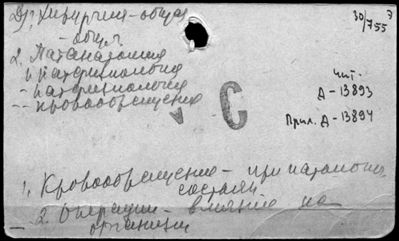 Хирургия - общая
30/755
7
- общ.
2. Патанатомия
и патфизиология
- патфизиология
чит.
Д-13893
-- кровообращение
Прил. Д-13894
v C
1. Кровообращение - при патолог.
состоян.
2. Операции - влияние на
организм